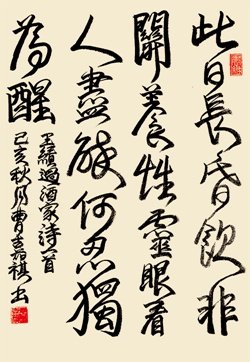 此日長昏飲非
關養性靈眼看
人盡醉何忍獨
為醒
王績過酒家詩一首
己亥秋月曹祺书